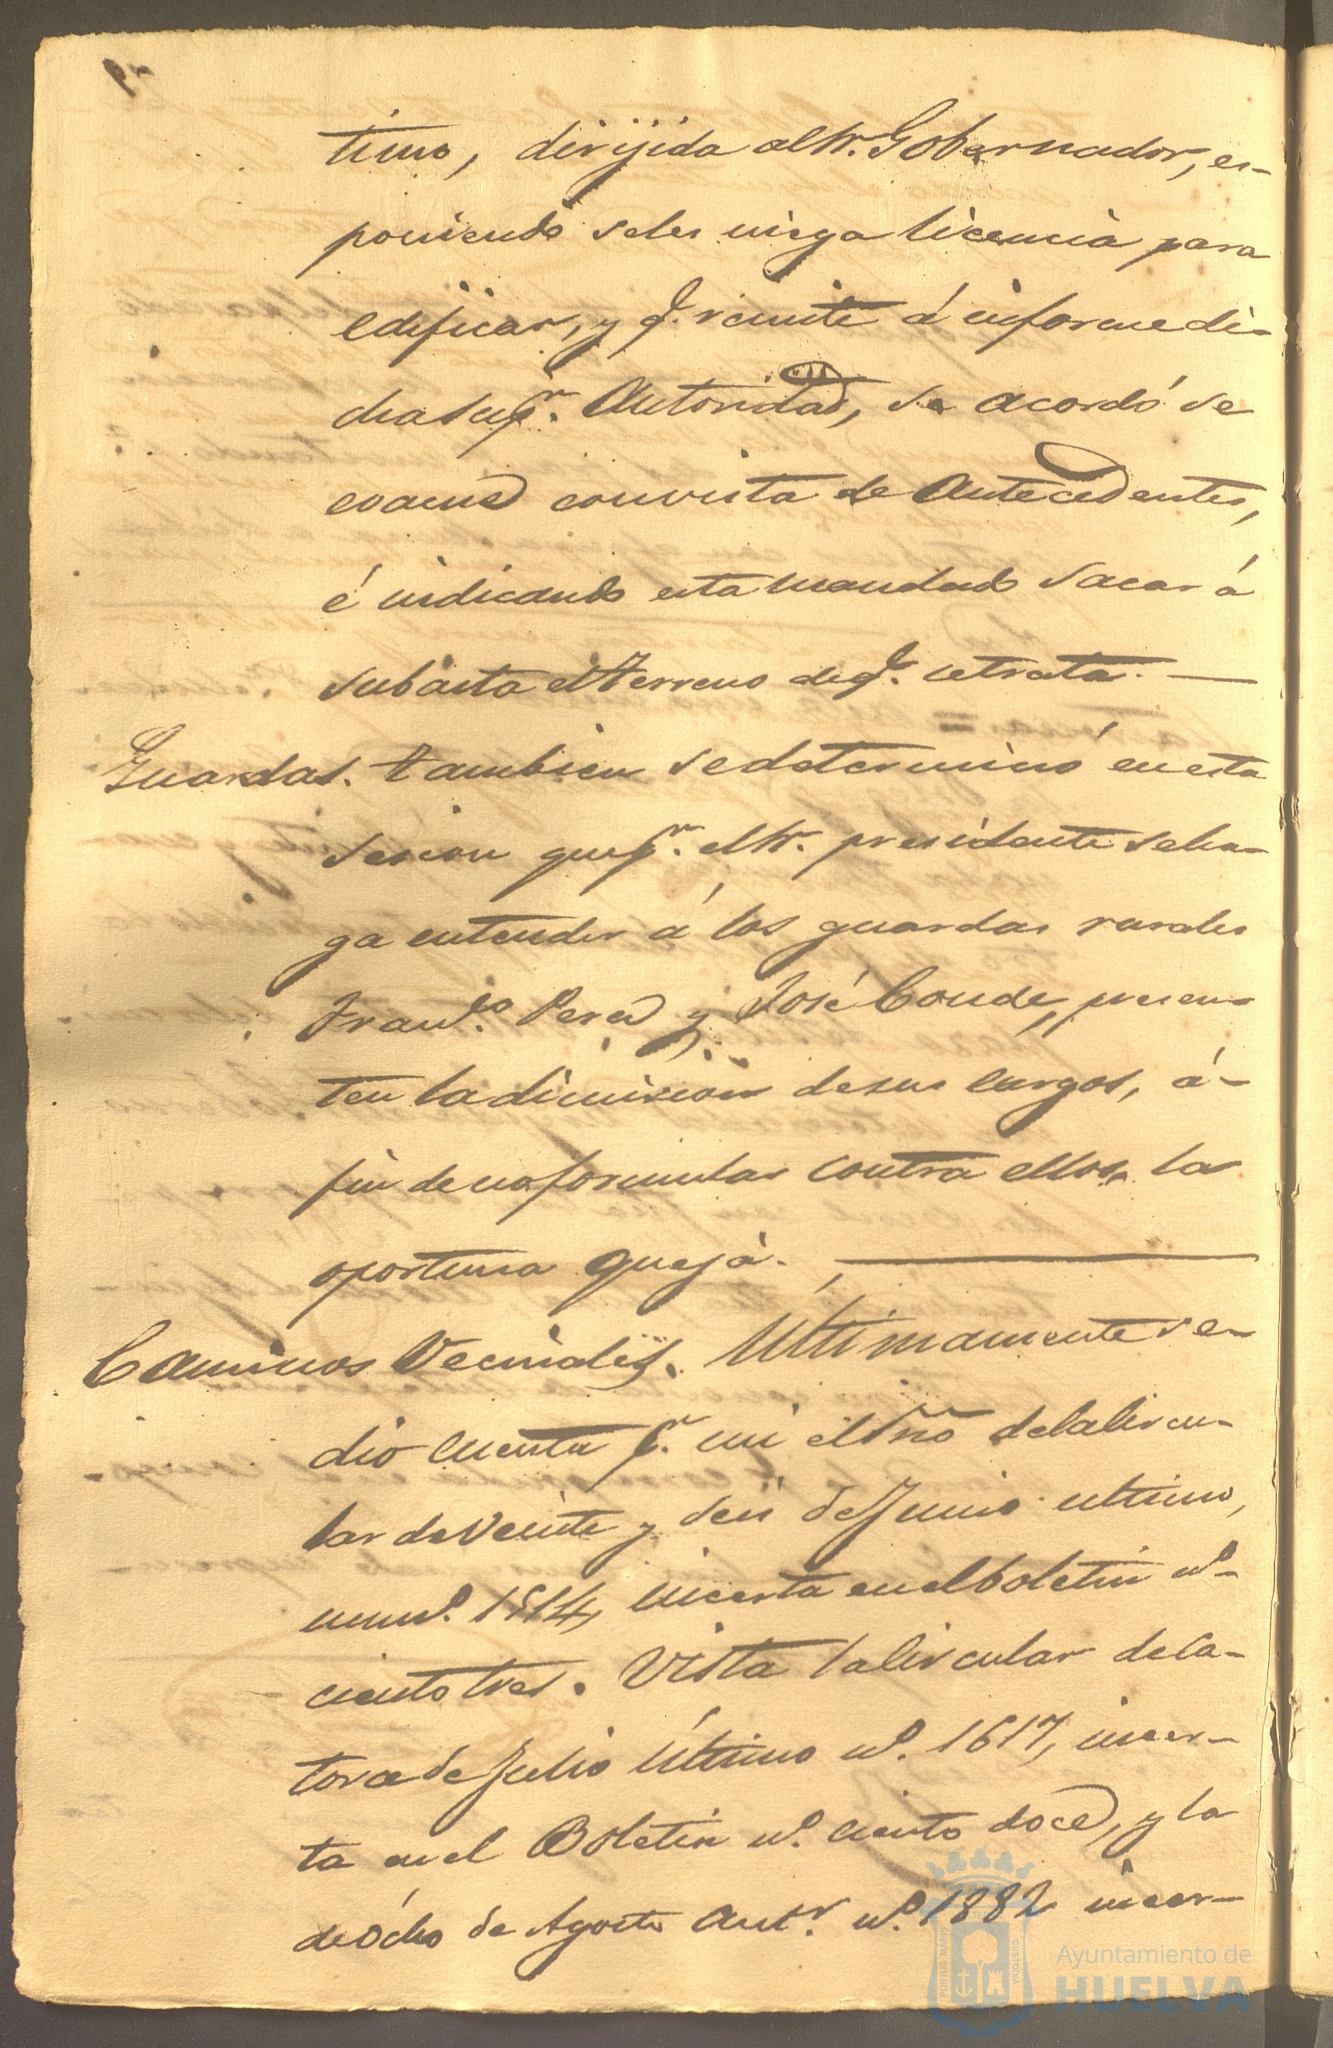 timo, dirijida al Sr. Gobernador, es-
poniendo seles niega licencia para
edificar, y q.e remite á informe di-
cha sup.r Autoridad, se acordó se
evacue con vista de Antecedentes,
é indicando esta mandado sacar á
subasta el terreno de q.e se trata.
Guardas. tambien se determinó en esta
sesion que p.r el Sr. presidente se ha-
ga entender á los guardas rurales
Fran.co Perez y José Conde, presen-
ten la dimision de sus cargos, á
fin de no formular contra ellos, la
oportuna queja.
Caminos Vecinales. Ultimamente se
dio cuenta p.r mi el Srio de la circu-
lar de Veinte y seis de Junio ultimo,
num.o 1514, incerta en el boletin n.o
ciento tres. Vista la circular de ca-
torce de Julio último n.o 1617, incer-
ta en el Boletin n.o ciento doce, y la
de Ocho de Agosto ant.r n.o 1882 incer-
Ayuntamiento de
HUELVA